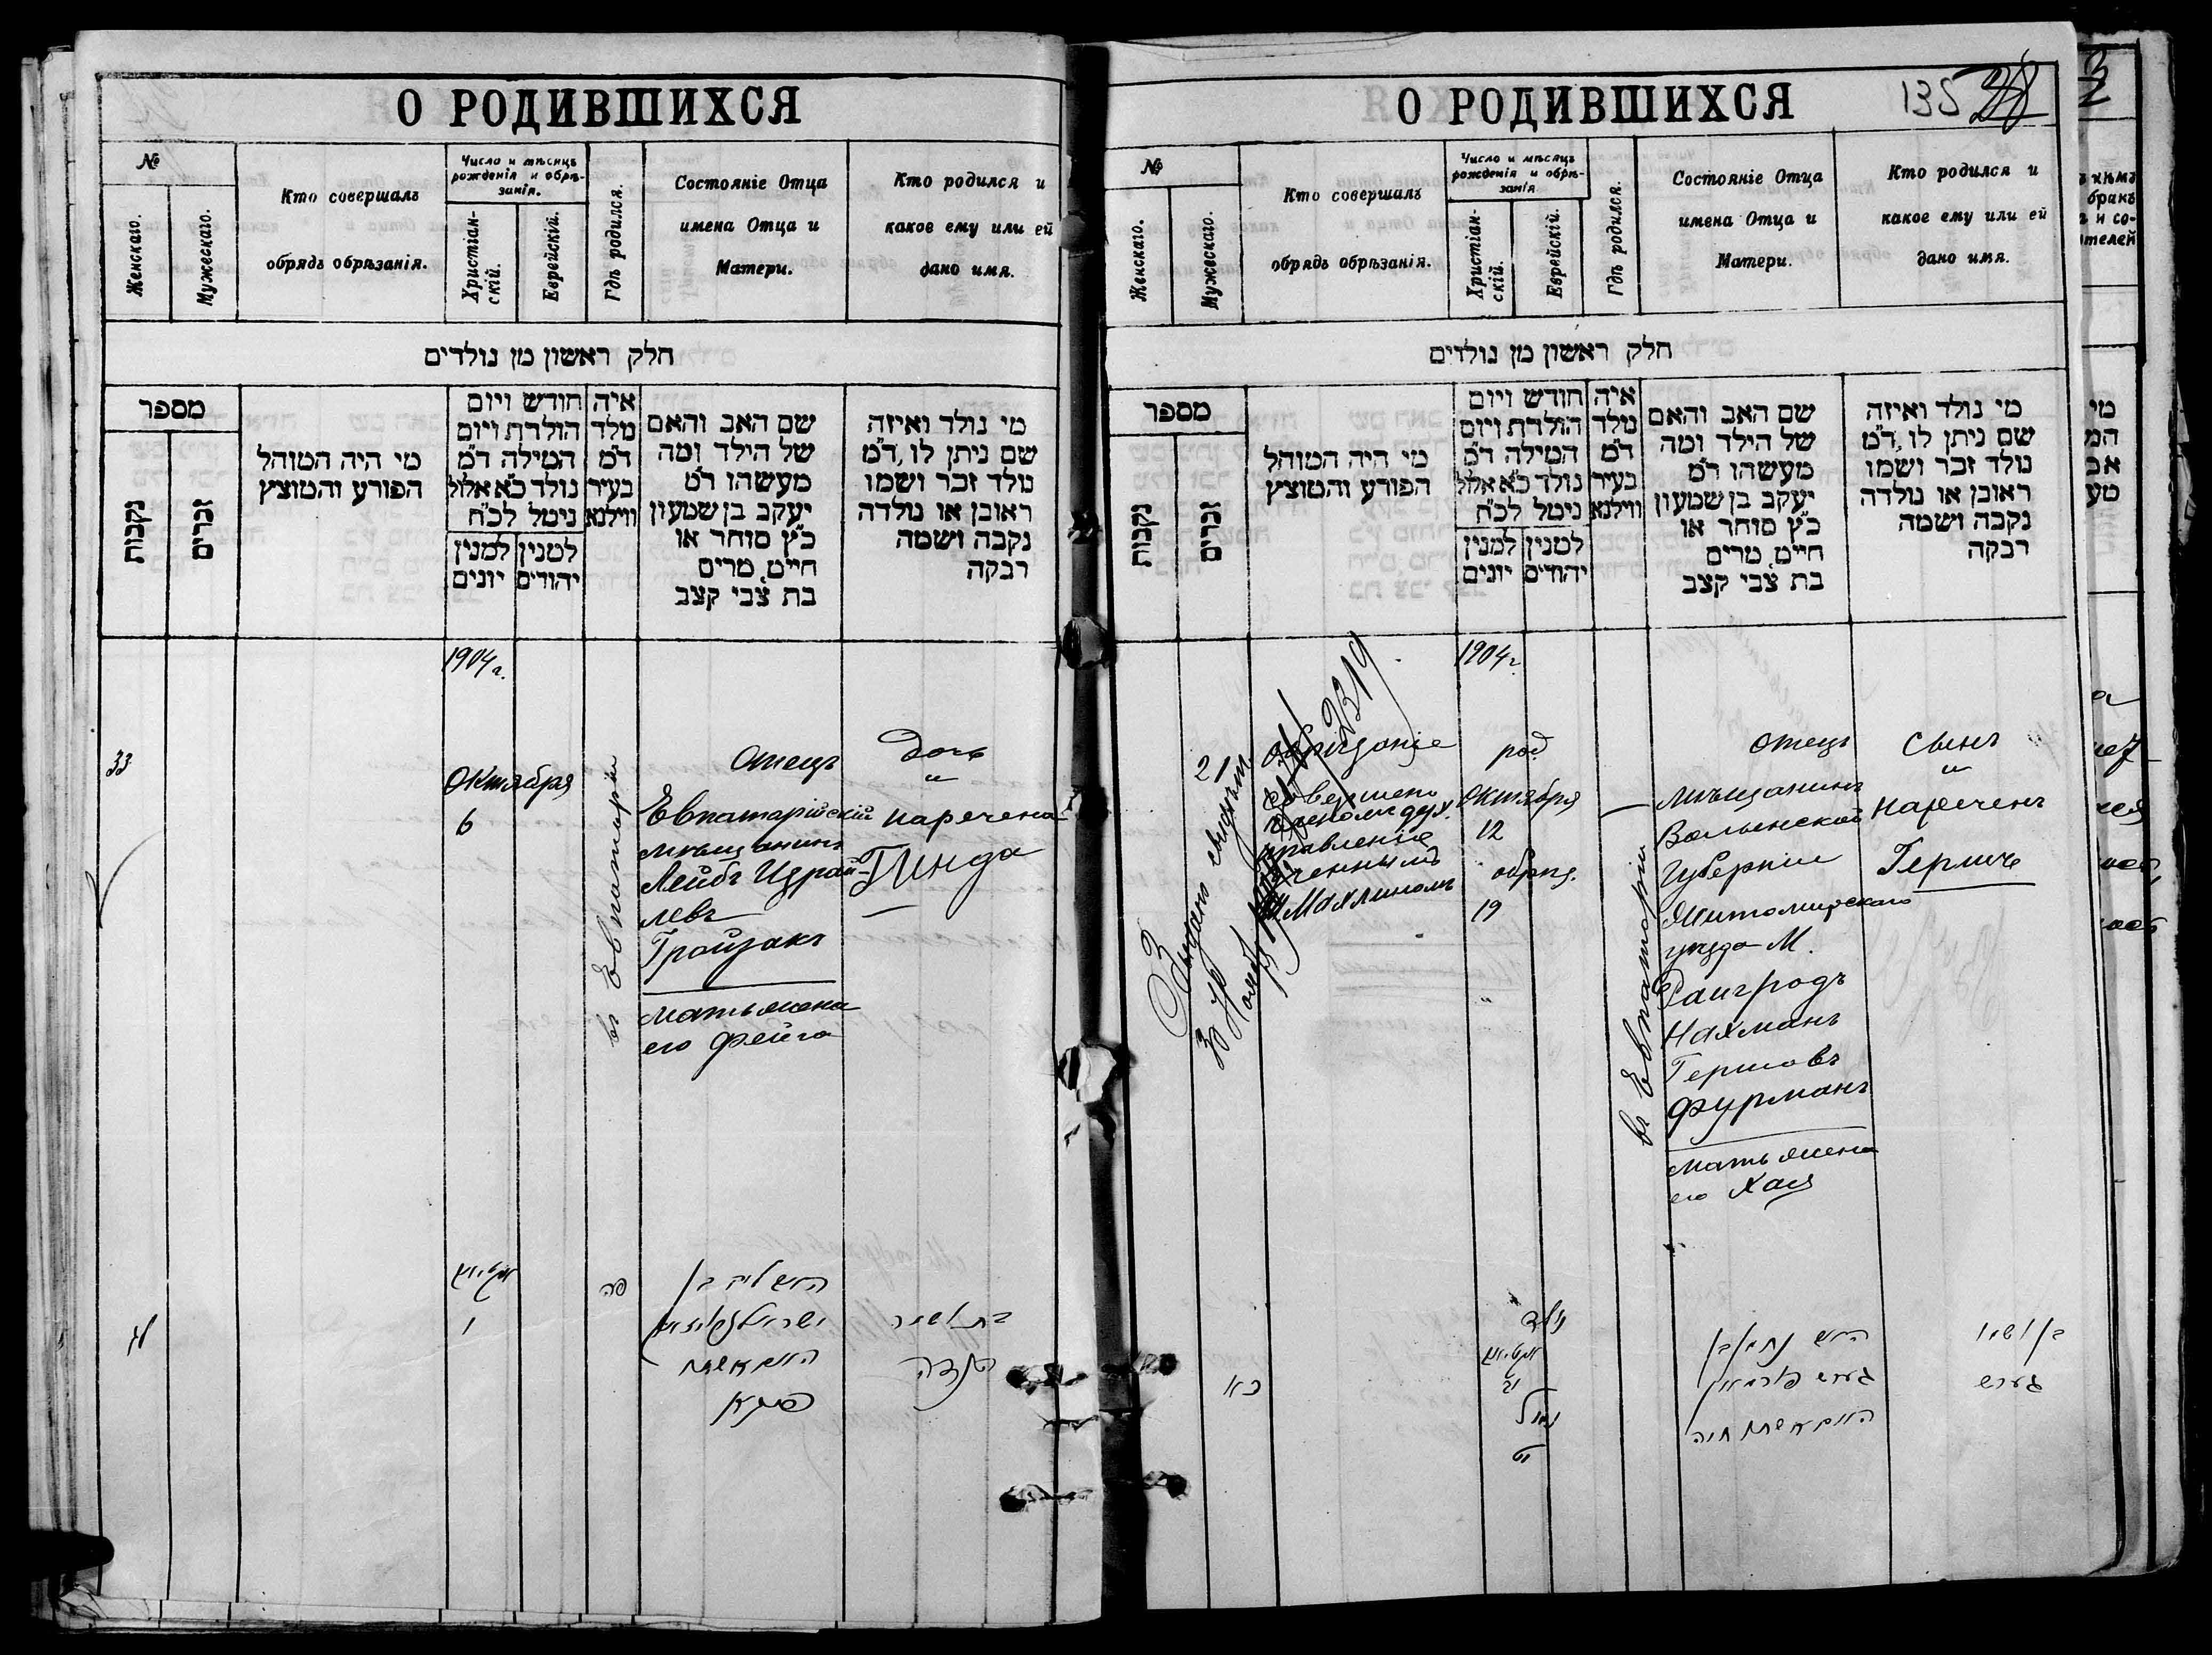 О РОДИВШИХСЯ
№
Женскаго.
Мужескаго.
Кто совершалъ
обрядъ обрѣзанія.
Число и мѣсяцъ
рожденія и обрѣ-
занія.
Христіан-
скій.
Еврейскій.
Гдѣ родился.
Состояніе Отца
имена Отца и
Матери.
Кто родился и
какое ему или ей
дано имя.
חלק ראשון מן נולדים
מספר
נקבות
זכרים
מי היה המוהל
הפורע והמוצץ
חודש ויום
הולדת ויום
המילה ד״מ
נולד כ״א אלול
ניטל לכ״ח
למנין
יונים
למנין
יהודים
איה
מלד
ד״מ
בעיר
ווילנא
שם האב והאם
של הילד ומה
מעשהו ד״מ
יעקב בן שמעון
כ״ץ סוחר או
חייט, מרים
בת צבי קצב
מי נולד ואיזה
שם ניתן לו, ד״מ
נולד זכר ושמו
ראובן או נולדה
נקבה ושמה
רבקה
1904 г.
33
Октября
6
въ Евпаторіи
Отецъ
Евпаторійскій
мѣщанинъ
Лейбъ Израи-
левъ
Тройзакъ
мать жена
его Фейга
дочь
и
наречена
Гинда
לג
ו
פה
בן
О РОДИВШИХСЯ
135
№
Женскаго.
Мужескаго.
Кто совершалъ
обрядъ обрѣзанія.
Число и мѣсяцъ
рожденія и обрѣ-
занія
Христіан-
скій.
Еврейскій.
Гдѣ родился.
Состояніе Отца
имена Отца и
Матери.
Кто родился и
какое ему или ей
дано имя.
חלק ראשון מן נולדים
מספר
נקבות
זכרים
מי היה המוהל
הפורע והמוצץ
חודש ויום
הולדת ויום
המילה ד״מ
נולד כ״א אלול
ניטל לכ״ח
למנין
יונים
למנין
יהודים
איה
נולד
ד״מ
בעיר
ווילנא
שם האב והאם
של הילד ומה
מעשהו ד״מ
יעקב בן שמעון
כ״ץ סוחר או
חייט, מרים
בת צבי קצב
מי נולד ואיזה
שם ניתן לו, ד״מ
נולד זכר ושמו
ראובן או נולדה
נקבה ושמה
רבקה
1904 г.
21
2319
Обрѣзаніе
совершено
членомъ дух.
правленія
ученымъ
Махлиномъ
род.
Октября
12
обрѣз.
19
въ Евпаторіи
Отецъ
мѣщанинъ
Волынской
губерніи
Житомирскаго
уѣзда М.
Нахманъ
Гершовъ
Фурманъ
мать жена
его Хая
Сынъ
и
нареченъ
Гершъ
כא
נולד
יב
נימול
יט
נחמן בן
גערש פורמאן
חיה
גערש